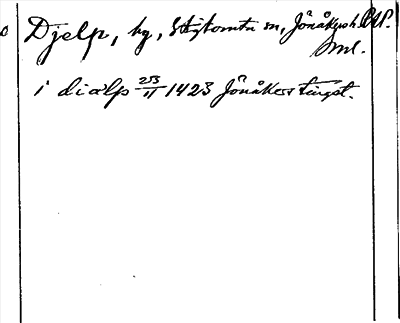 Djelp, hg, Stigtomta sn, Jönåkers h. RAP.
Sml.
i dialp 23/11 1423 Jönåkers tingst.